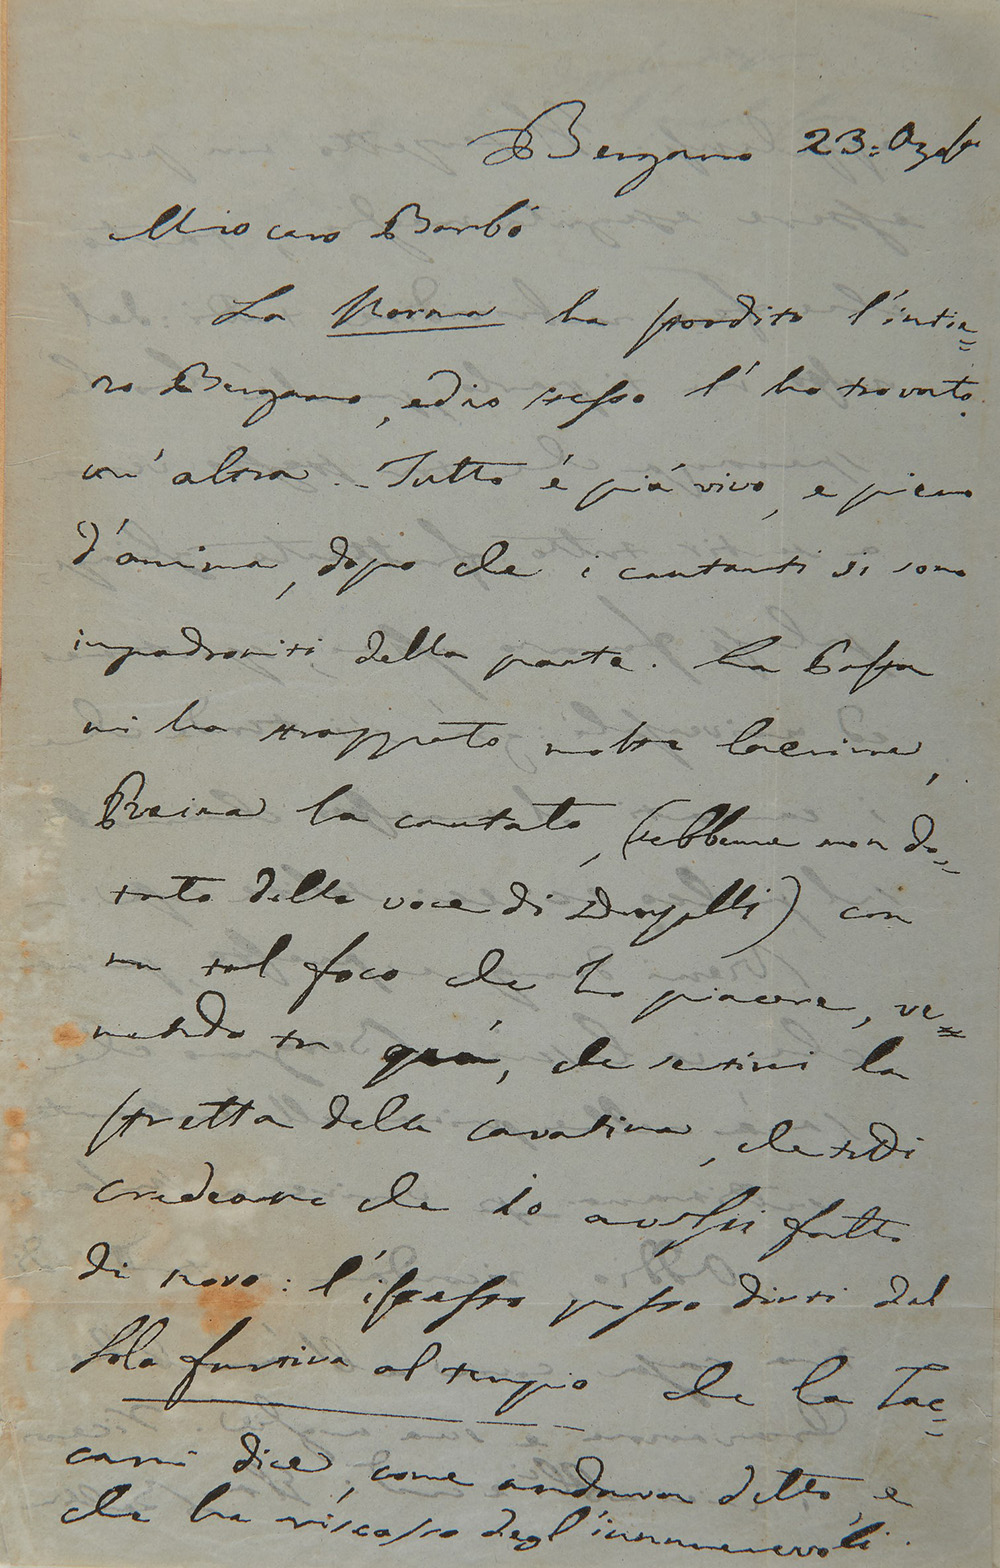 Bergamo 23: Ag.to
Mio caro Barbò
La Norma ha stordito l'intie=
ro Bergamo, ed io stesso l'ho trovata
un'altra. Tutto è più vivo, e pieno
d'anima, dopo che i cantanti si sono
impadroniti della parte. La Pasta
mi ha strappato molte lacrime,
Reina la cantato, (sebbene non do=
tato della voce di Donzelli) con
un tal foco che ho piacere, ve=
nendo tu quà, che senti la
stretta della cavatina, che tutti
credeano che io avessi fatta
di novo: l'istesso posso dirti del
Sola furtiva al tempio che la Tac=
cani dice, come andava detto, e
che ha riscosso degl'innumerevoli.